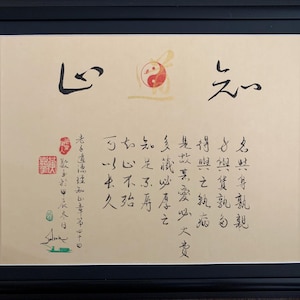 知止
名與身孰親
身與貨孰多
得與亡孰病
是故甚愛必大費
多藏必厚亡
知足不辱
知止不殆
可以長久
老子道德經